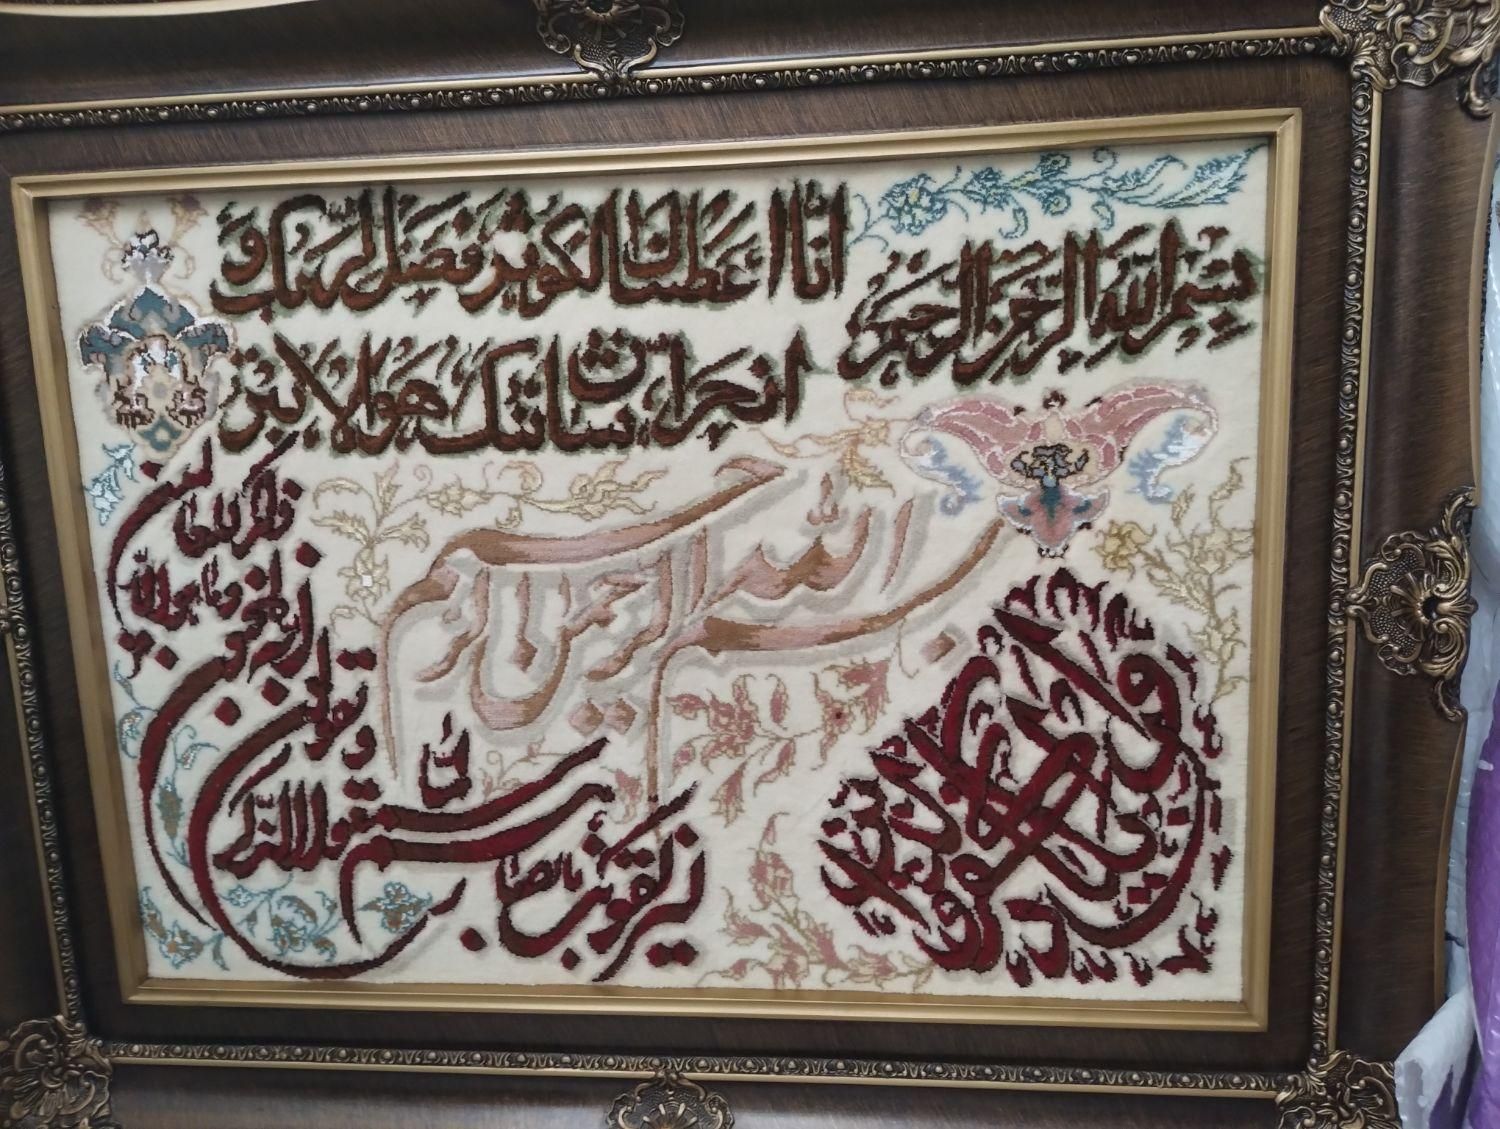 بسم الله الرحمن الرحیم
انا اعطیناک الکوثر فصل لربک و
انحر ان شانئک هو الابتر
بسم الله الرحمن الرحیم
و ان یکاد الذین کفروا
لیزلقونک بابصارهم
لما سمعوا الذکر
و یقولون
انه لمجنون و ما هو الا
ذکر للعالمین